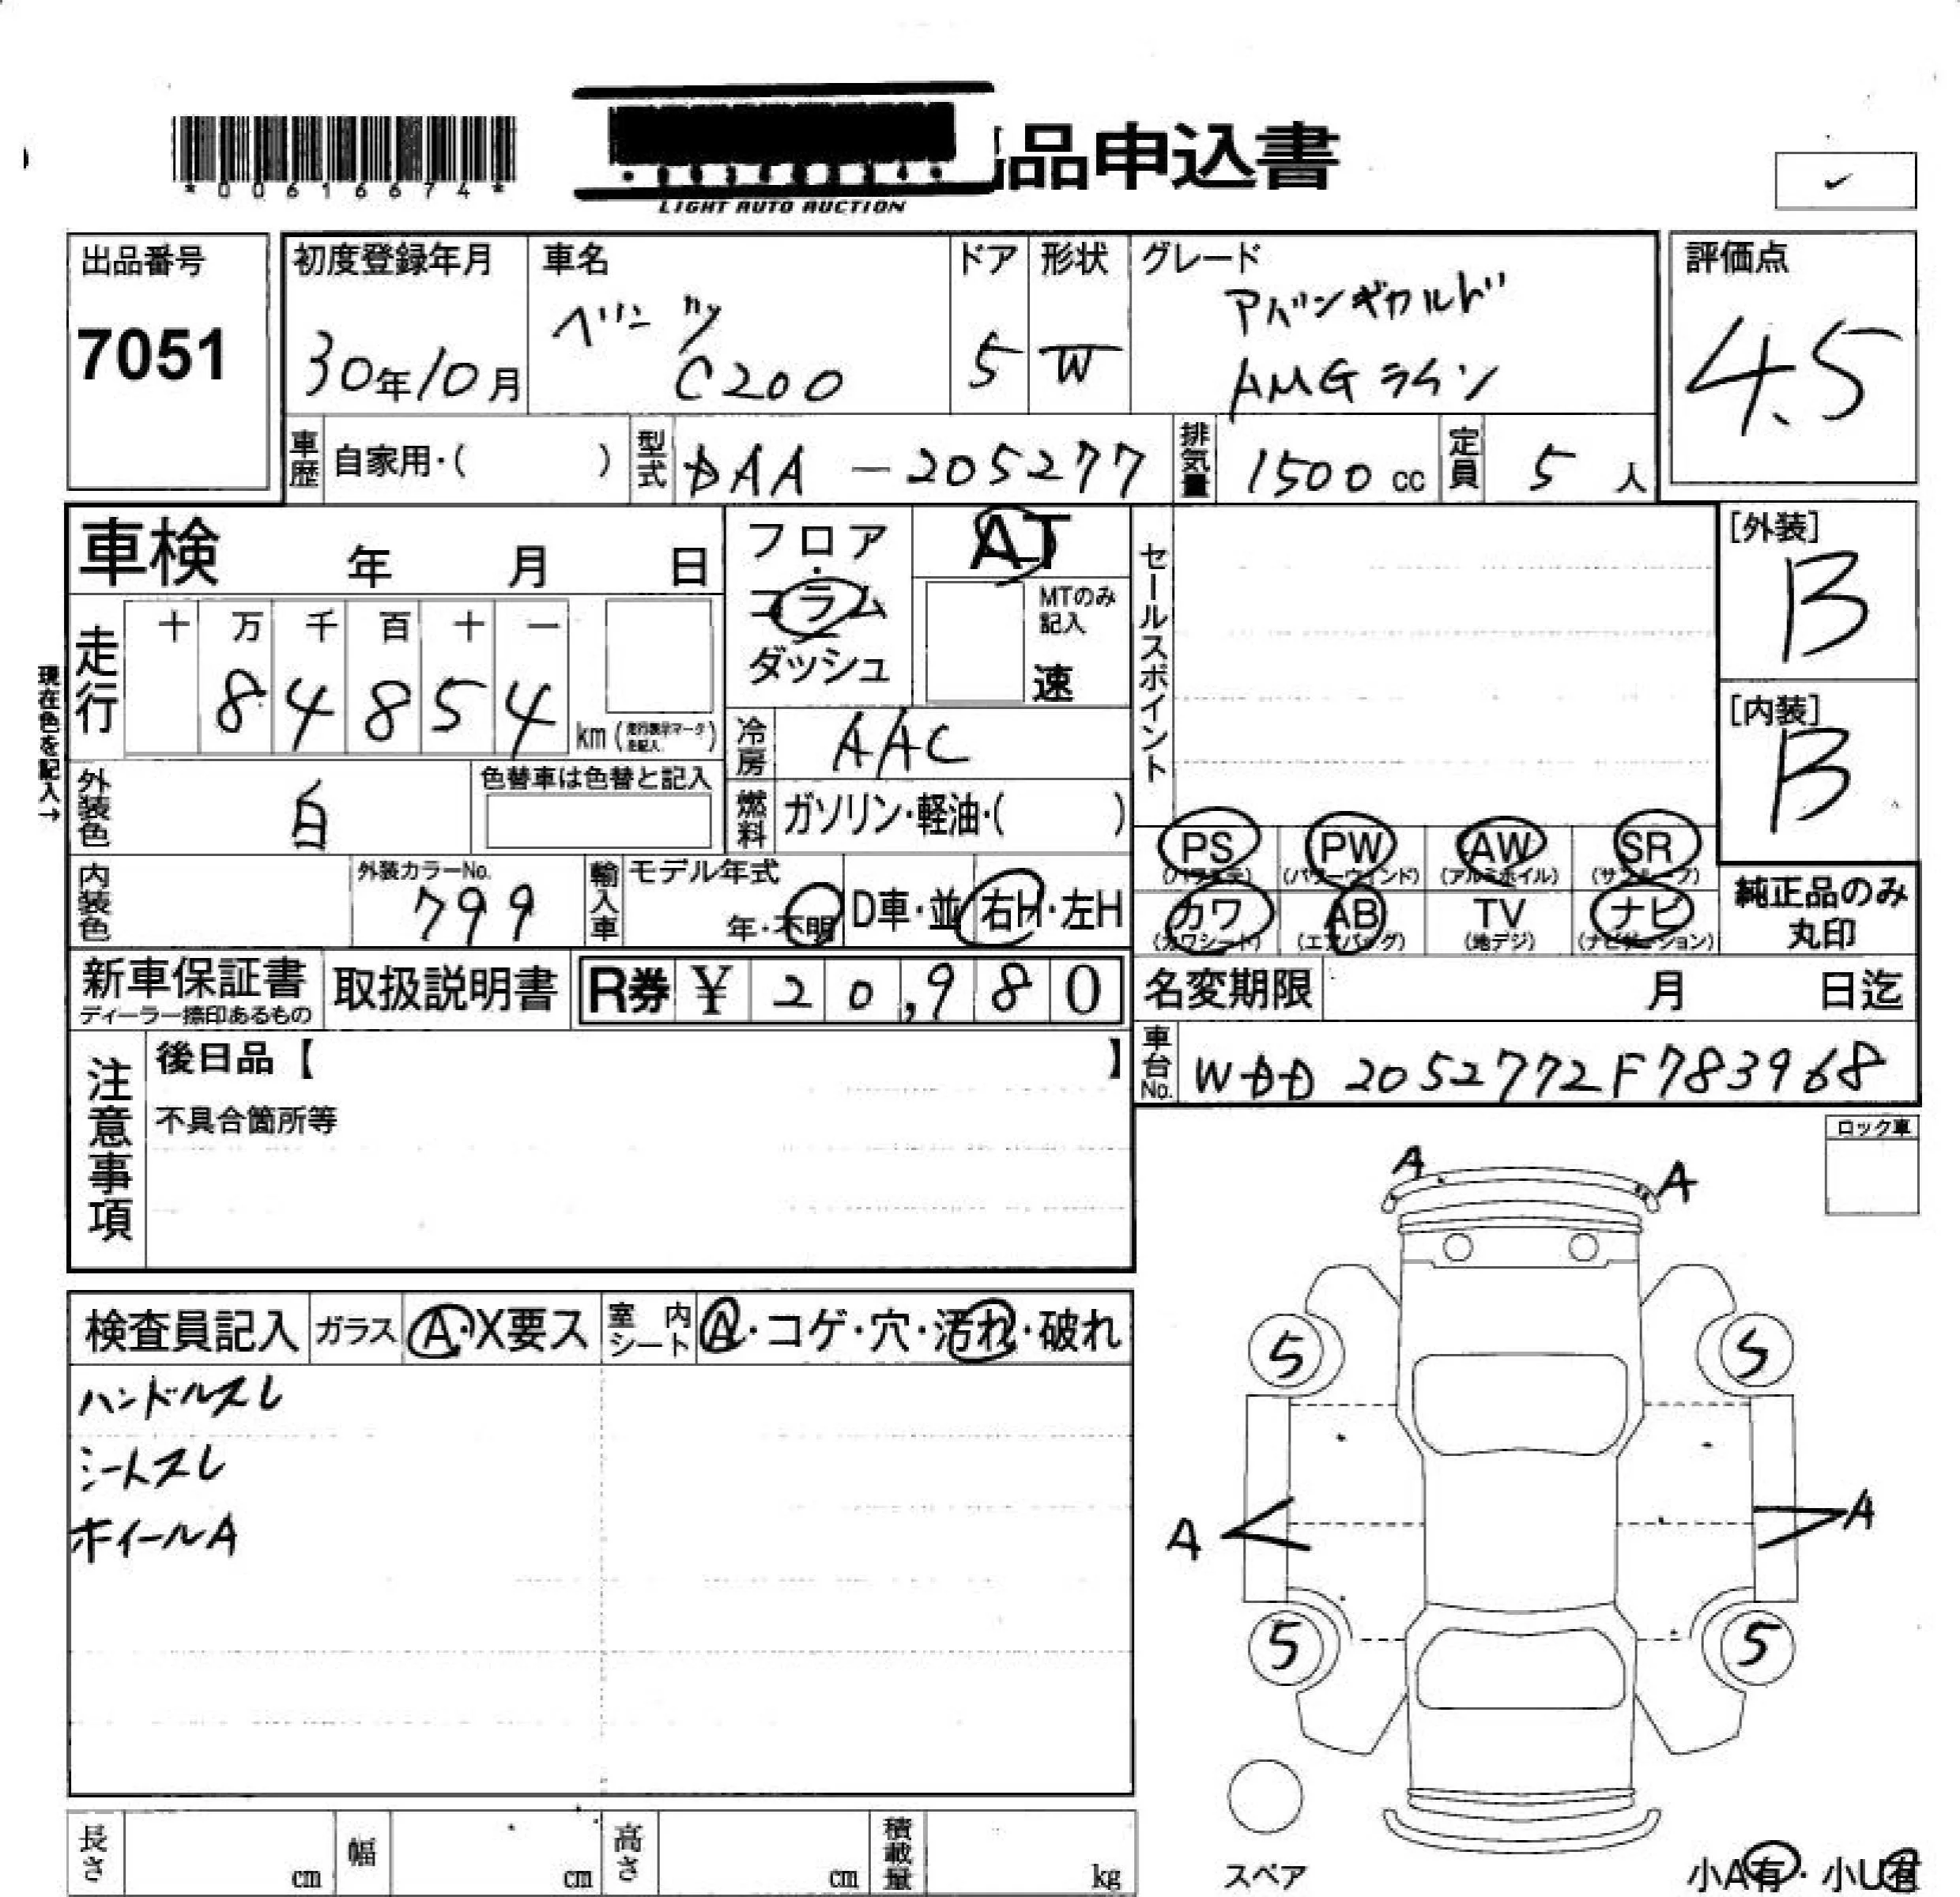 *00616674*
品申込書
LIGHT AUTO AUCTION
✓
出品番号
7051
初度登録年月
30年10月
車名
ベンツ
C200
ドア
5
形状
W
グレード
アバンギャルド
AMGライン
評価点
4.5
車歴 自家用・( )
型式 DAA-205277
排気量 1500 cc
定員 5 人
車検 年 月 日
フロア
・
コラム
ダッシュ
AT
MTのみ
記入
速
セールスポイント
[外装]
B
[内装]
B
走行
十 万 千 百 十 一
8 4 8 5 4
km(走行表示マークを記入)
現在色を記入→
冷房 AAC
外装色 白
色替車は色替と記入
燃料 ガソリン・軽油・( )
PS
(パワステ)
PW
(パワーウィンド)
AW
(アルミホイル)
SR
(サンルーフ)
内装色
外装カラーNo.
799
輸入車
モデル年式
年・不明
D車・並
右H・左H
カワ
(カワシート)
AB
(エアバッグ)
TV
(地デジ)
ナビ
(ナビゲーション)
純正品のみ
丸印
新車保証書
ディーラー捺印あるもの
取扱説明書
R券 ¥ 20,980
名変期限 月 日迄
車台No. WDD2052772F783968
注意事項
後日品【 】
不具合箇所等
ロック車
A
A
検査員記入
ガラス A・X要ス
室内シート A・コゲ・穴・汚れ・破れ
ハンドルスレ
シートスレ
ホイールA
5
5
A
A
5
5
スペア
小A有・小U有
長さ cm
幅 cm
高さ cm
積載量 kg